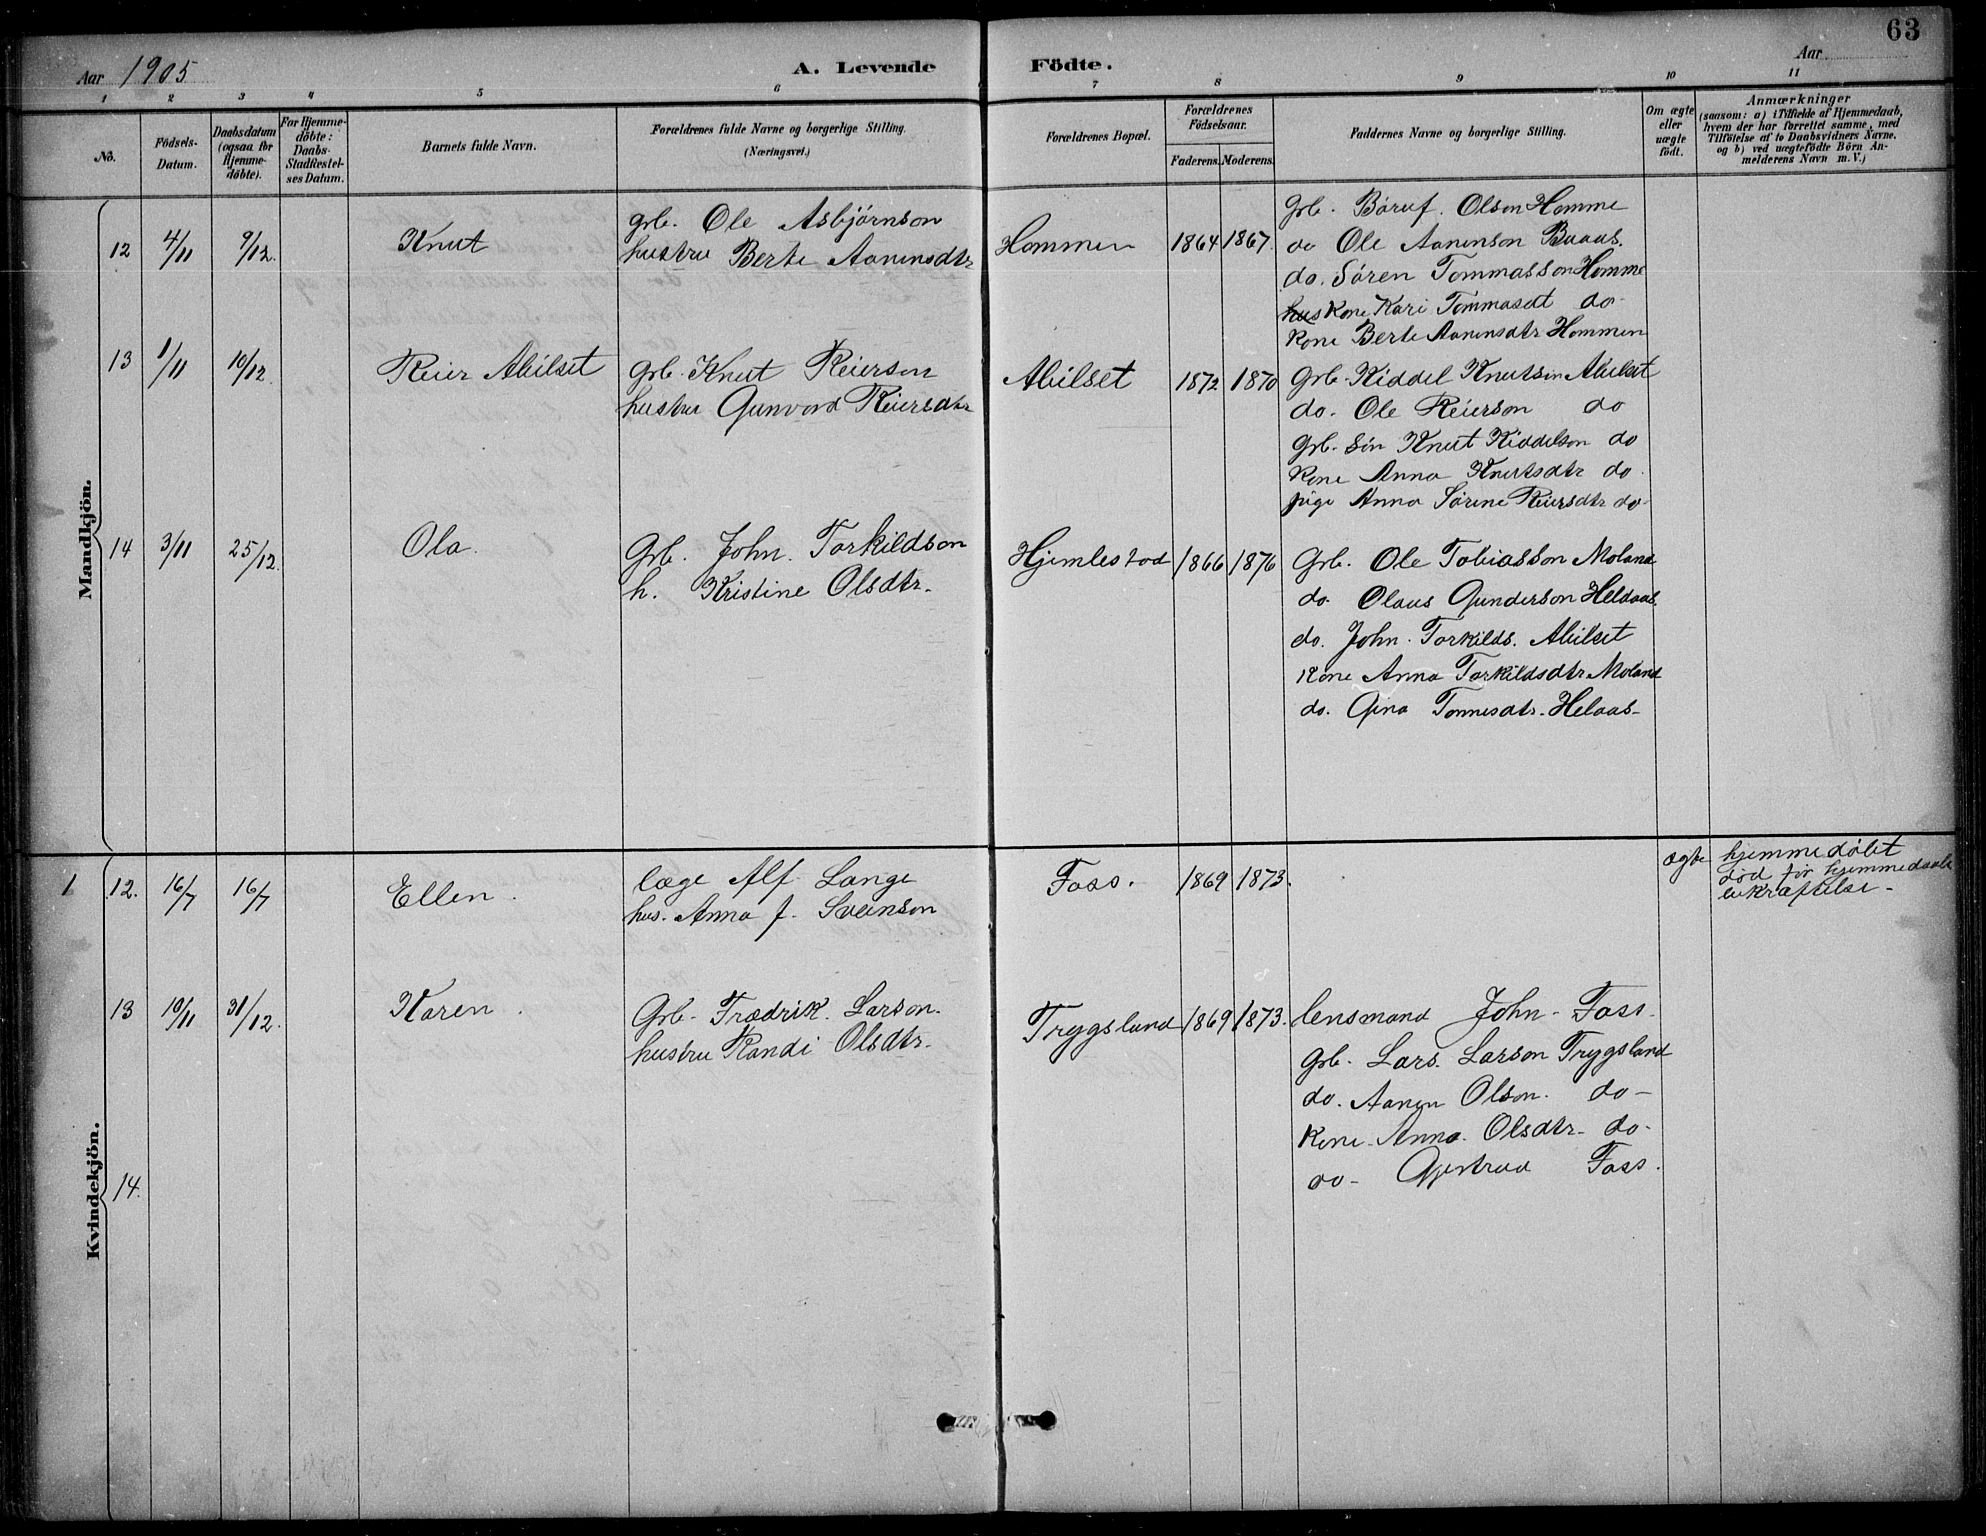 63
Aar 1905 A. Levende Födte. Aar
1 2 3 4 5 6 7 8 9 10 11
No.
Födsels-
Datum.
Daabsdatum
(ogsaa for
Hjemme-
döbte).
For Hjemme-
döbte:
Daabs-
Stadfæstel-
ses Datum.
Barnets fulde Navn.
Forældrenes fulde Navne og borgerlige Stilling.
(Næringsvei.)
Forældrenes Bopæl.
Forældrenes
Födselsaar.
Faderens. Moderens.
Faddernes Navne og borgerlige Stilling.
Om ægte
eller
uægte
födt.
Anmærkninger
(saasom: a) i Tilfælde af Hjemmedaab,
hvem der har forrettet samme, med
Tilföielse af to Daabsvidners Navne.
og b) ved uægtefödte Börn An-
melderens Navn m. V.)
Mandkjön.
12 4/11 9/12. Knut
grb. Ole Asbjørnson
hustru Berte Aanensdtr
Hommen 1864 1867.
Grb. Børuf. Olson Homme
do Ole Aanenson Buaas.
do. Sören Tommasson Homme
Kone Kari Tommasdt do-
Kone Berte Aanensdtr Hommen
13 1/11 10/12. Reier Abilset
Grb. Knut Reierson
hustru Gunvord Reiersdtr
Abilset 1872 1870
Grb. Kiddel Knutson Abilset
do. Ole Reierson do
Grb. Søn Knut Kiddelson do
Kone Anna Knutsdtr do.
pige Anna Sörine Reiersdtr do-
14 3/11 25/12. Ola.
Grb. John. Torkildson
h. Kristine Olsdtr.
Hjemlestod 1866 1876
Grb. Ole Tobiasson Moland
do. Olaus Gunderson Heldaas.
do. John. Torkilds. Abilset
Kone Anna Torkildsdtr Moland
do. Gina Tonnesdtr. Helaas-
Kvindekjön.
1 12. 16/7 16/7 Ellen.
læge Alf Lange
hus. Anna J. Sveinson
Foss. 1869 1873.
ægte
hjemmedøbt
død før hjemmedaabs
bekræftelse-
13 10/11 31/12. Karen.
Grb. Frædrik. Larson.
hustru Randi Olsdtr.
Trygsland 1869 1873.
lensmand John Foss.
Grb. Lars. Larson Trygsland
do. Aanen Olson. do-
Kone. Anna. Olsdtr. do-
do- Gjertrud Foss.
14.